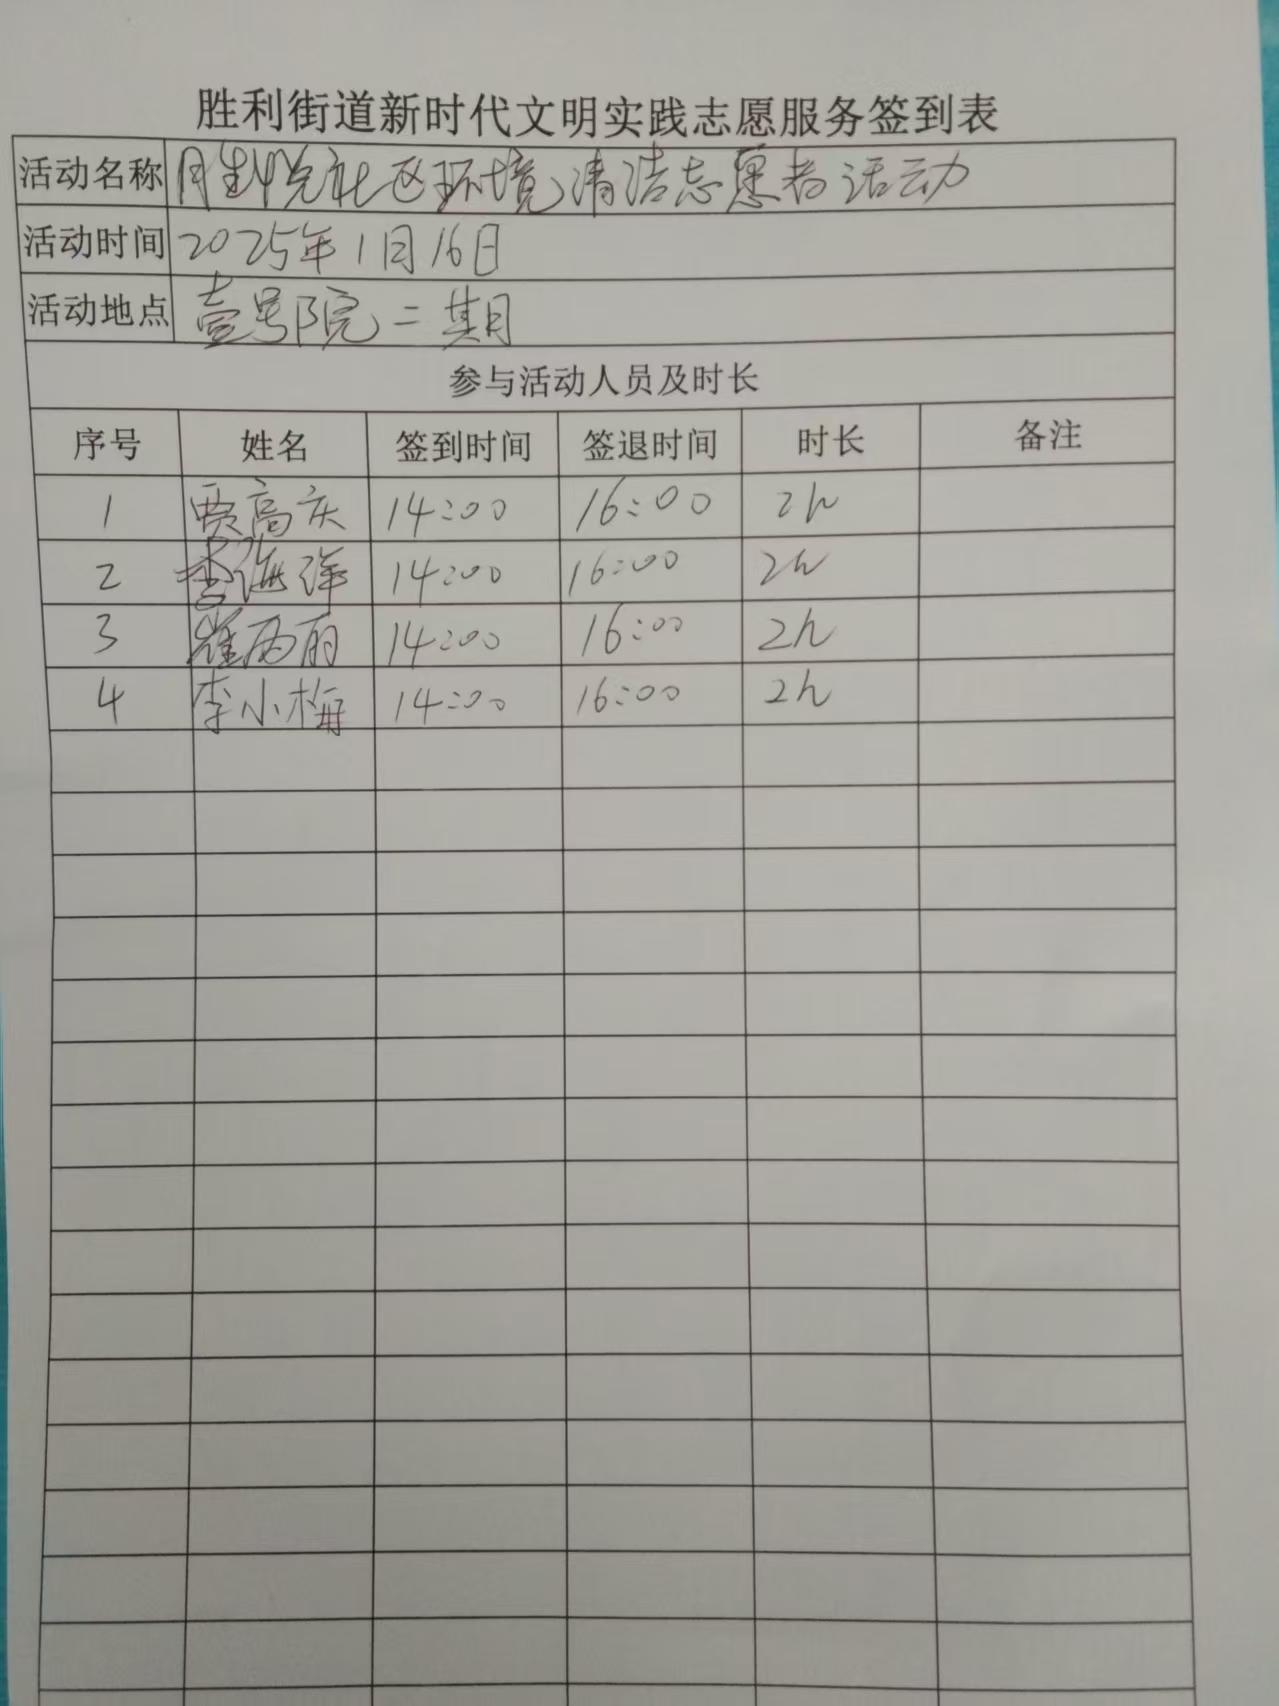 胜利街道新时代文明实践志愿服务签到表
活动名称 社区环境清洁志愿者活动
活动时间 2025年1月16日
活动地点 壹号院二期
参与活动人员及时长
序号 姓名 签到时间 签退时间 时长 备注
1 贾高庆 14:00 16:00 2h
2 李海洋 14:00 16:00 2h
3 崔丽 14:00 16:00 2h
4 李小梅 14:00 16:00 2h